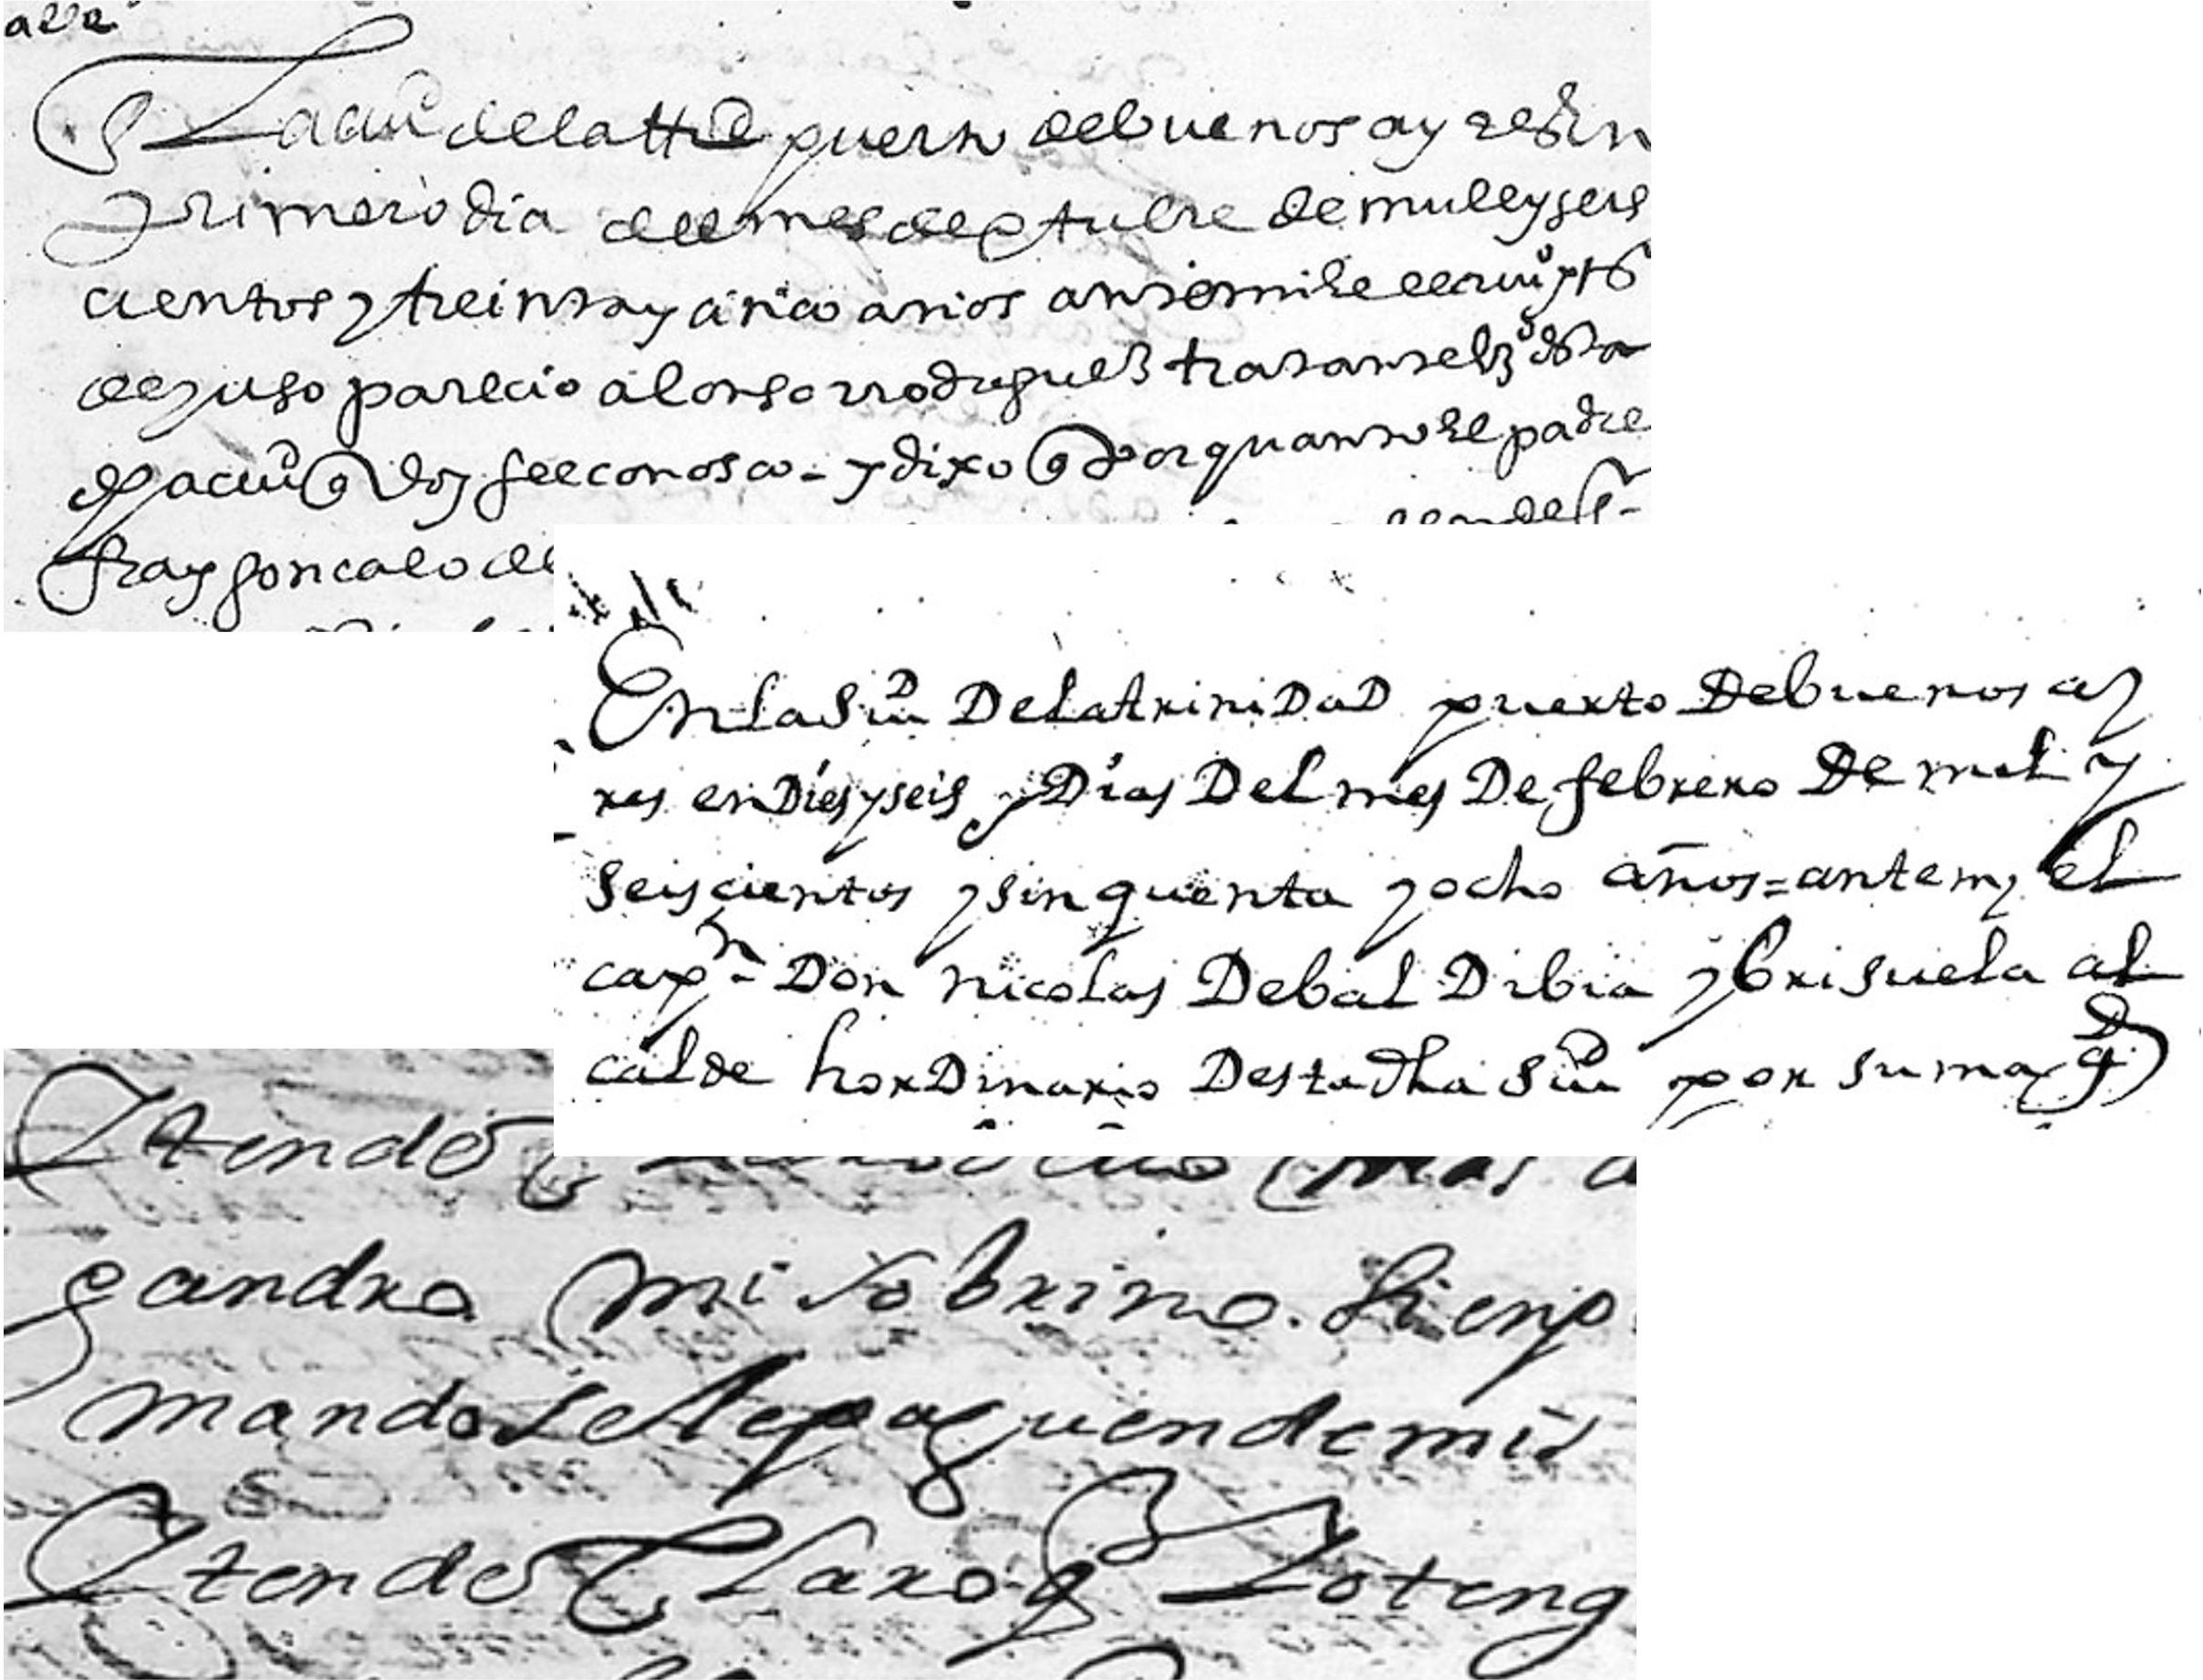 En la ciud de la ttd puerto de buenos ayres En
primero dia del mes de otubre de mill y seis
cientos y treinta y cinco años ante mi el escriuo ppco
de yuso parecio alonso rrodriguez tratante vzo desta
dha ciud q doy fee conosco - y dixo q Por quanto el padre
fray goncalo de
En La Siud De La trinidaD puerto De buenos ay
res en Dies y seis Dias Del mes De febrero De mil y
seis cientos y sinquenta y ocho años = ante my el
capn - Don nicolas De bal Dibia y brisuela al
calde hordinario Desta dha Siud por su magd
Yten de
gandra mi sobrino. Si enp
mando se le paguen de mis
Yten declaro q Lo teng